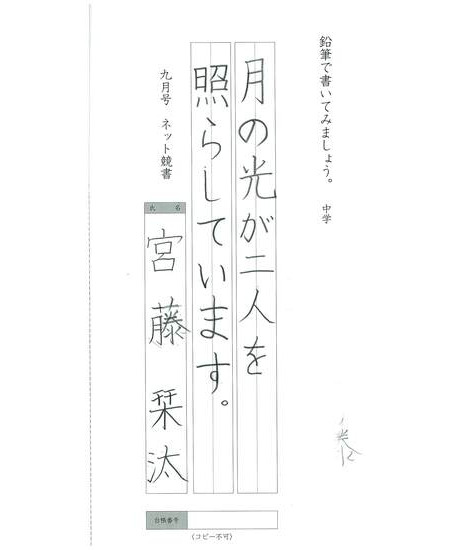 鉛筆で書いてみましょう。 中学
月の光が二人を
照らしています。
九月号 ネット競書
氏 名
宮藤 栞汰
台帳番号
(コピー不可)